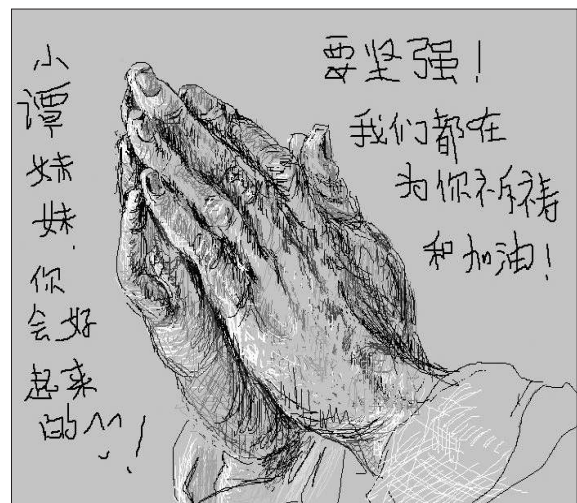 小
谭
妹
妹.
你
会好
起来
的^^!
要坚强!
我们都在
为你祈祷
和加油!